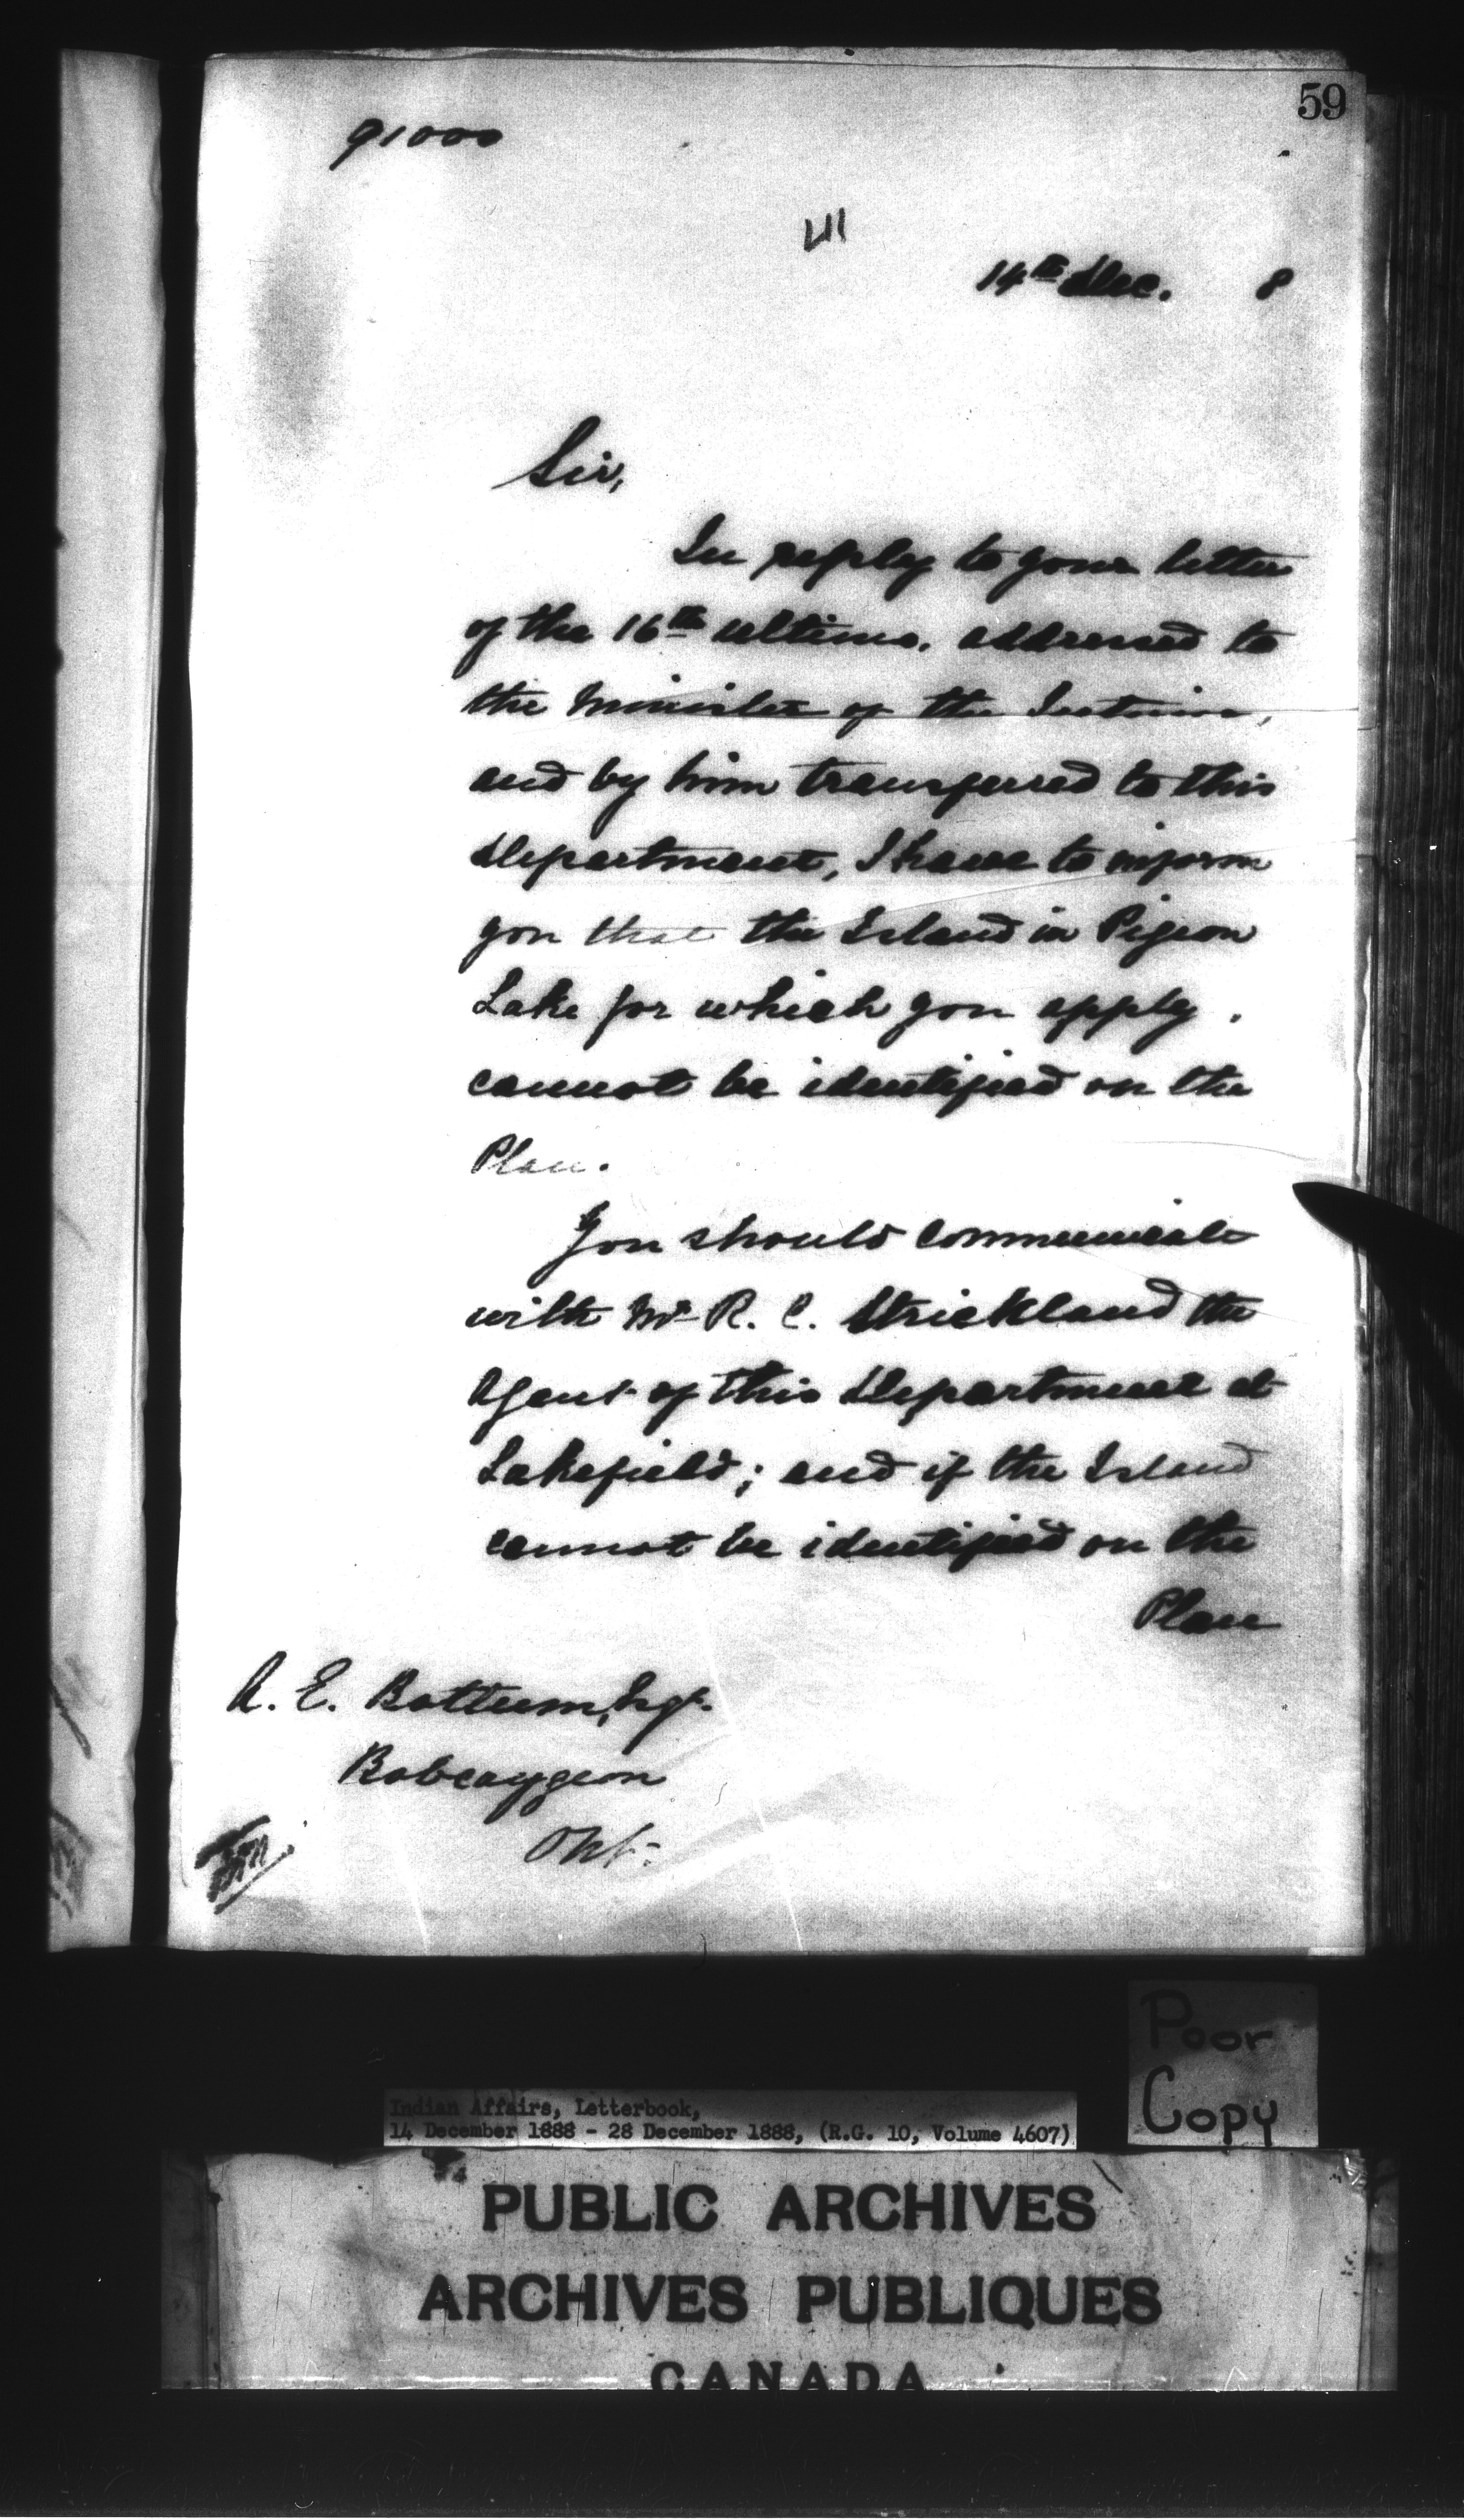 59
91000
14th Dec. 8
Sir,
In reply to your letter
of the 16th ultimo, addressed to
the Minister of the Interior,
and by him transferred to this
Department, I have to inform
you that the Island in Pigeon
Lake for which you apply,
cannot be identified on the
Plan.
You should communicate
with Mr R. C. Strickland the
Agent of this Department at
Lakefield; and if the Island
cannot be identified on the
Plan
A. E. Bottum, Esqr.
Bobcaygeon
Ont.
Poor
Copy
Indian Affairs, Letterbook,
14 December 1888 - 28 December 1888, (R.G. 10, Volume 4607)
PUBLIC ARCHIVES
ARCHIVES PUBLIQUES
CANADA